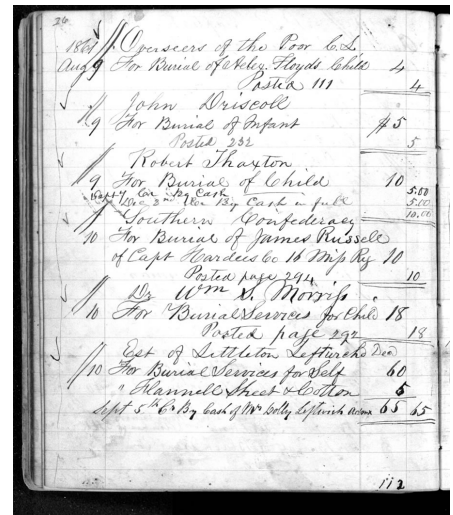 26
1861 // Overseers of the Poor C.L,
Aug 9 For Burial of Floyds Child 4
Posted 111 4
// John Driscoll
9 For Burial of Infant $5
Posted 232 5
// Robert Thaxton
9 For Burial of Child 10
By Cash 5.00
Dec 2nd By Cash in full 5.00
// Southern Confederacy 10.00
10 For Burial of James Russell
of Capt Hardees Co 16 Miss Reg 10
Posted page 294 10
// Dr Wm S. Morris
10 For Burial Services for Chil 18
Posted page 292 18
// Est of Littleton Leftwich Dec
10 For Burial Services for Self 60
" Flannell Sheet & Cotton 5
Sept 5th Cr By Cash of Mrs Dolly Leftwich 65 65
112